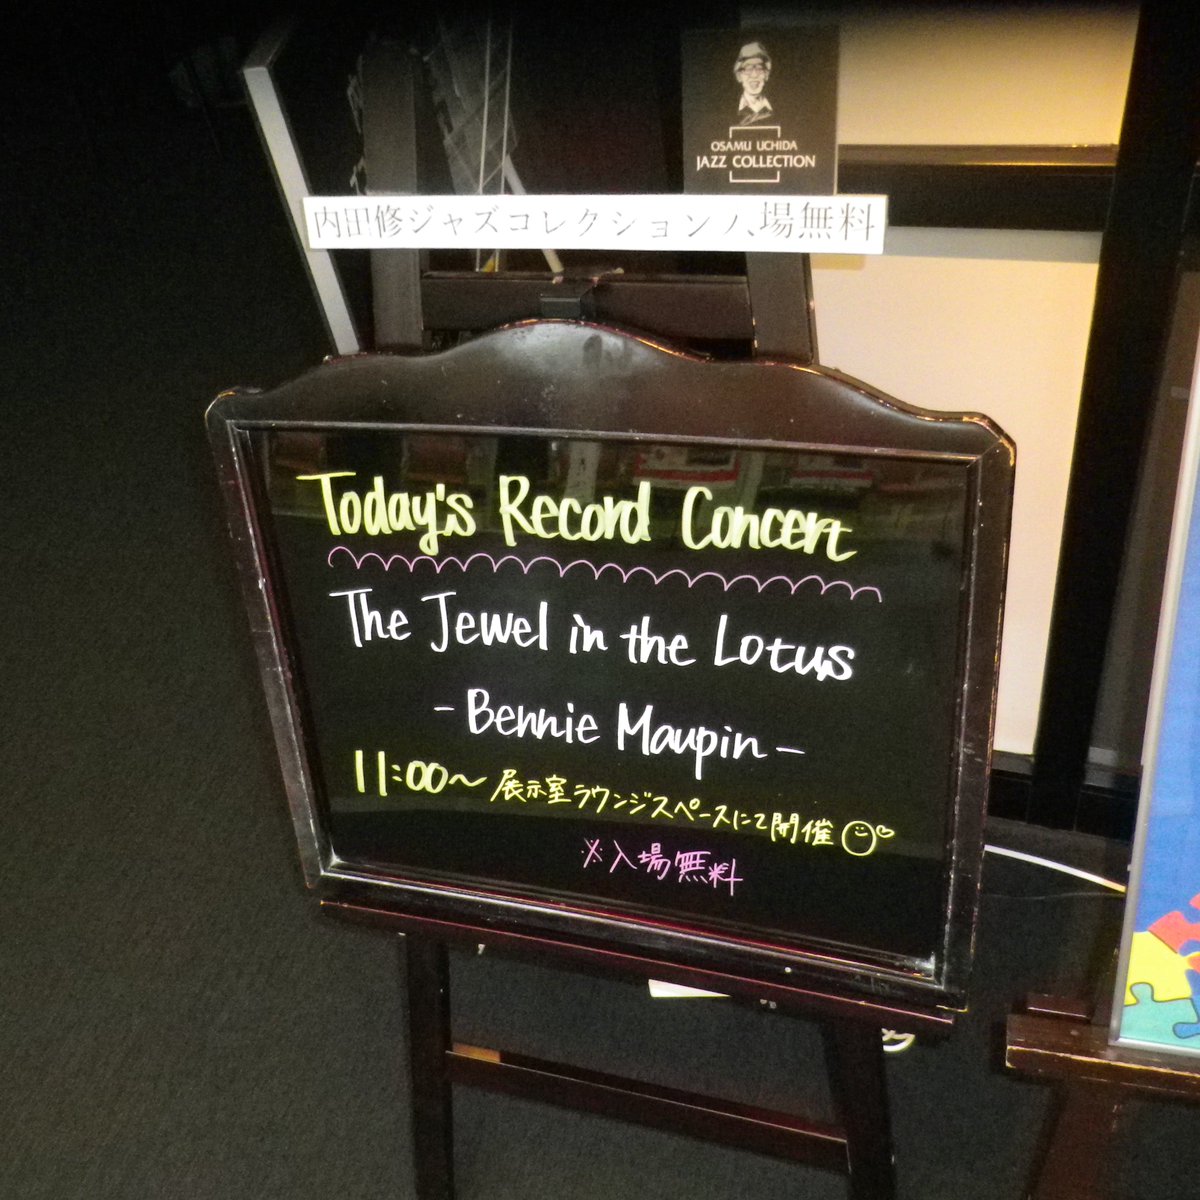 OSAMU UCHIDA
JAZZ COLLECTION
内田修ジャズコレクション入場無料
Today's Record Concert
The Jewel in the Lotus
- Bennie Maupin -
11:00～ 展示室ラウンジスペースにて開催
※入場無料